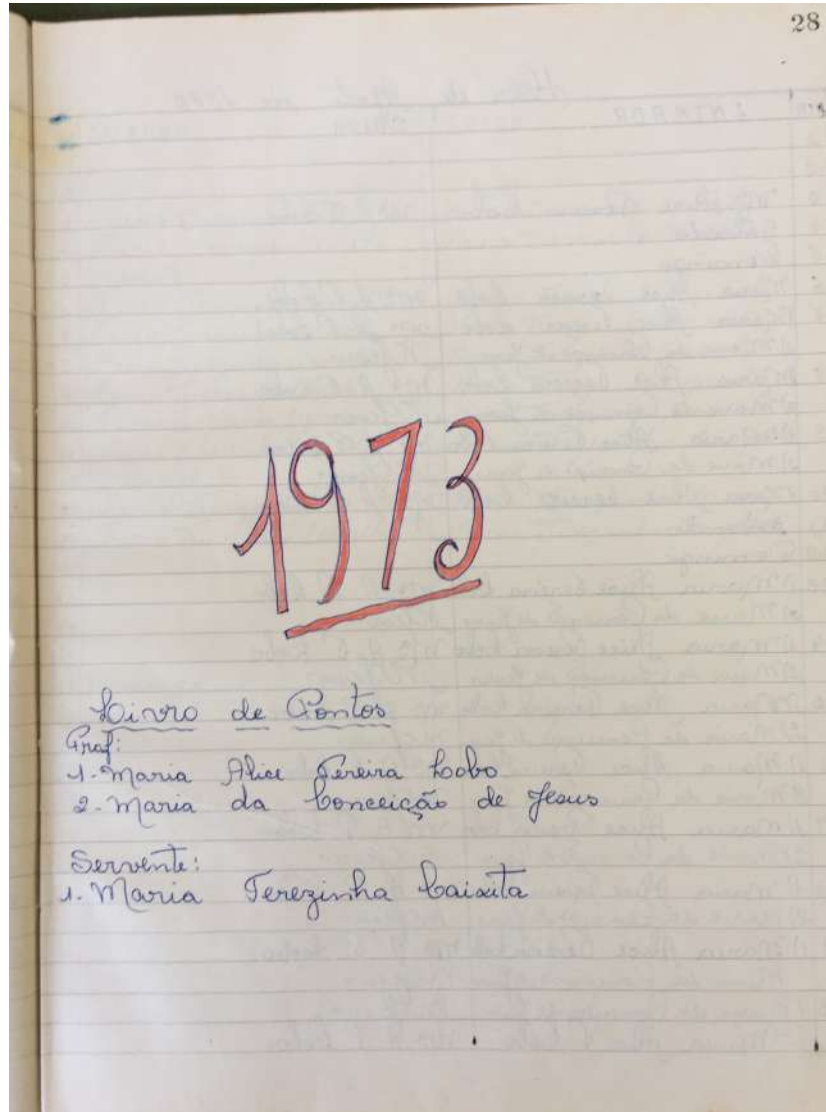 28
1973
Livro de Pontos
Prof:
1. Maria Alice Pereira Lobo
2. Maria da Conceição de Jesus
Servente:
1. Maria Terezinha Caixita